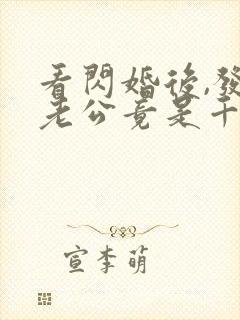 看閃婚後,發
老公竟是千
宣李萌